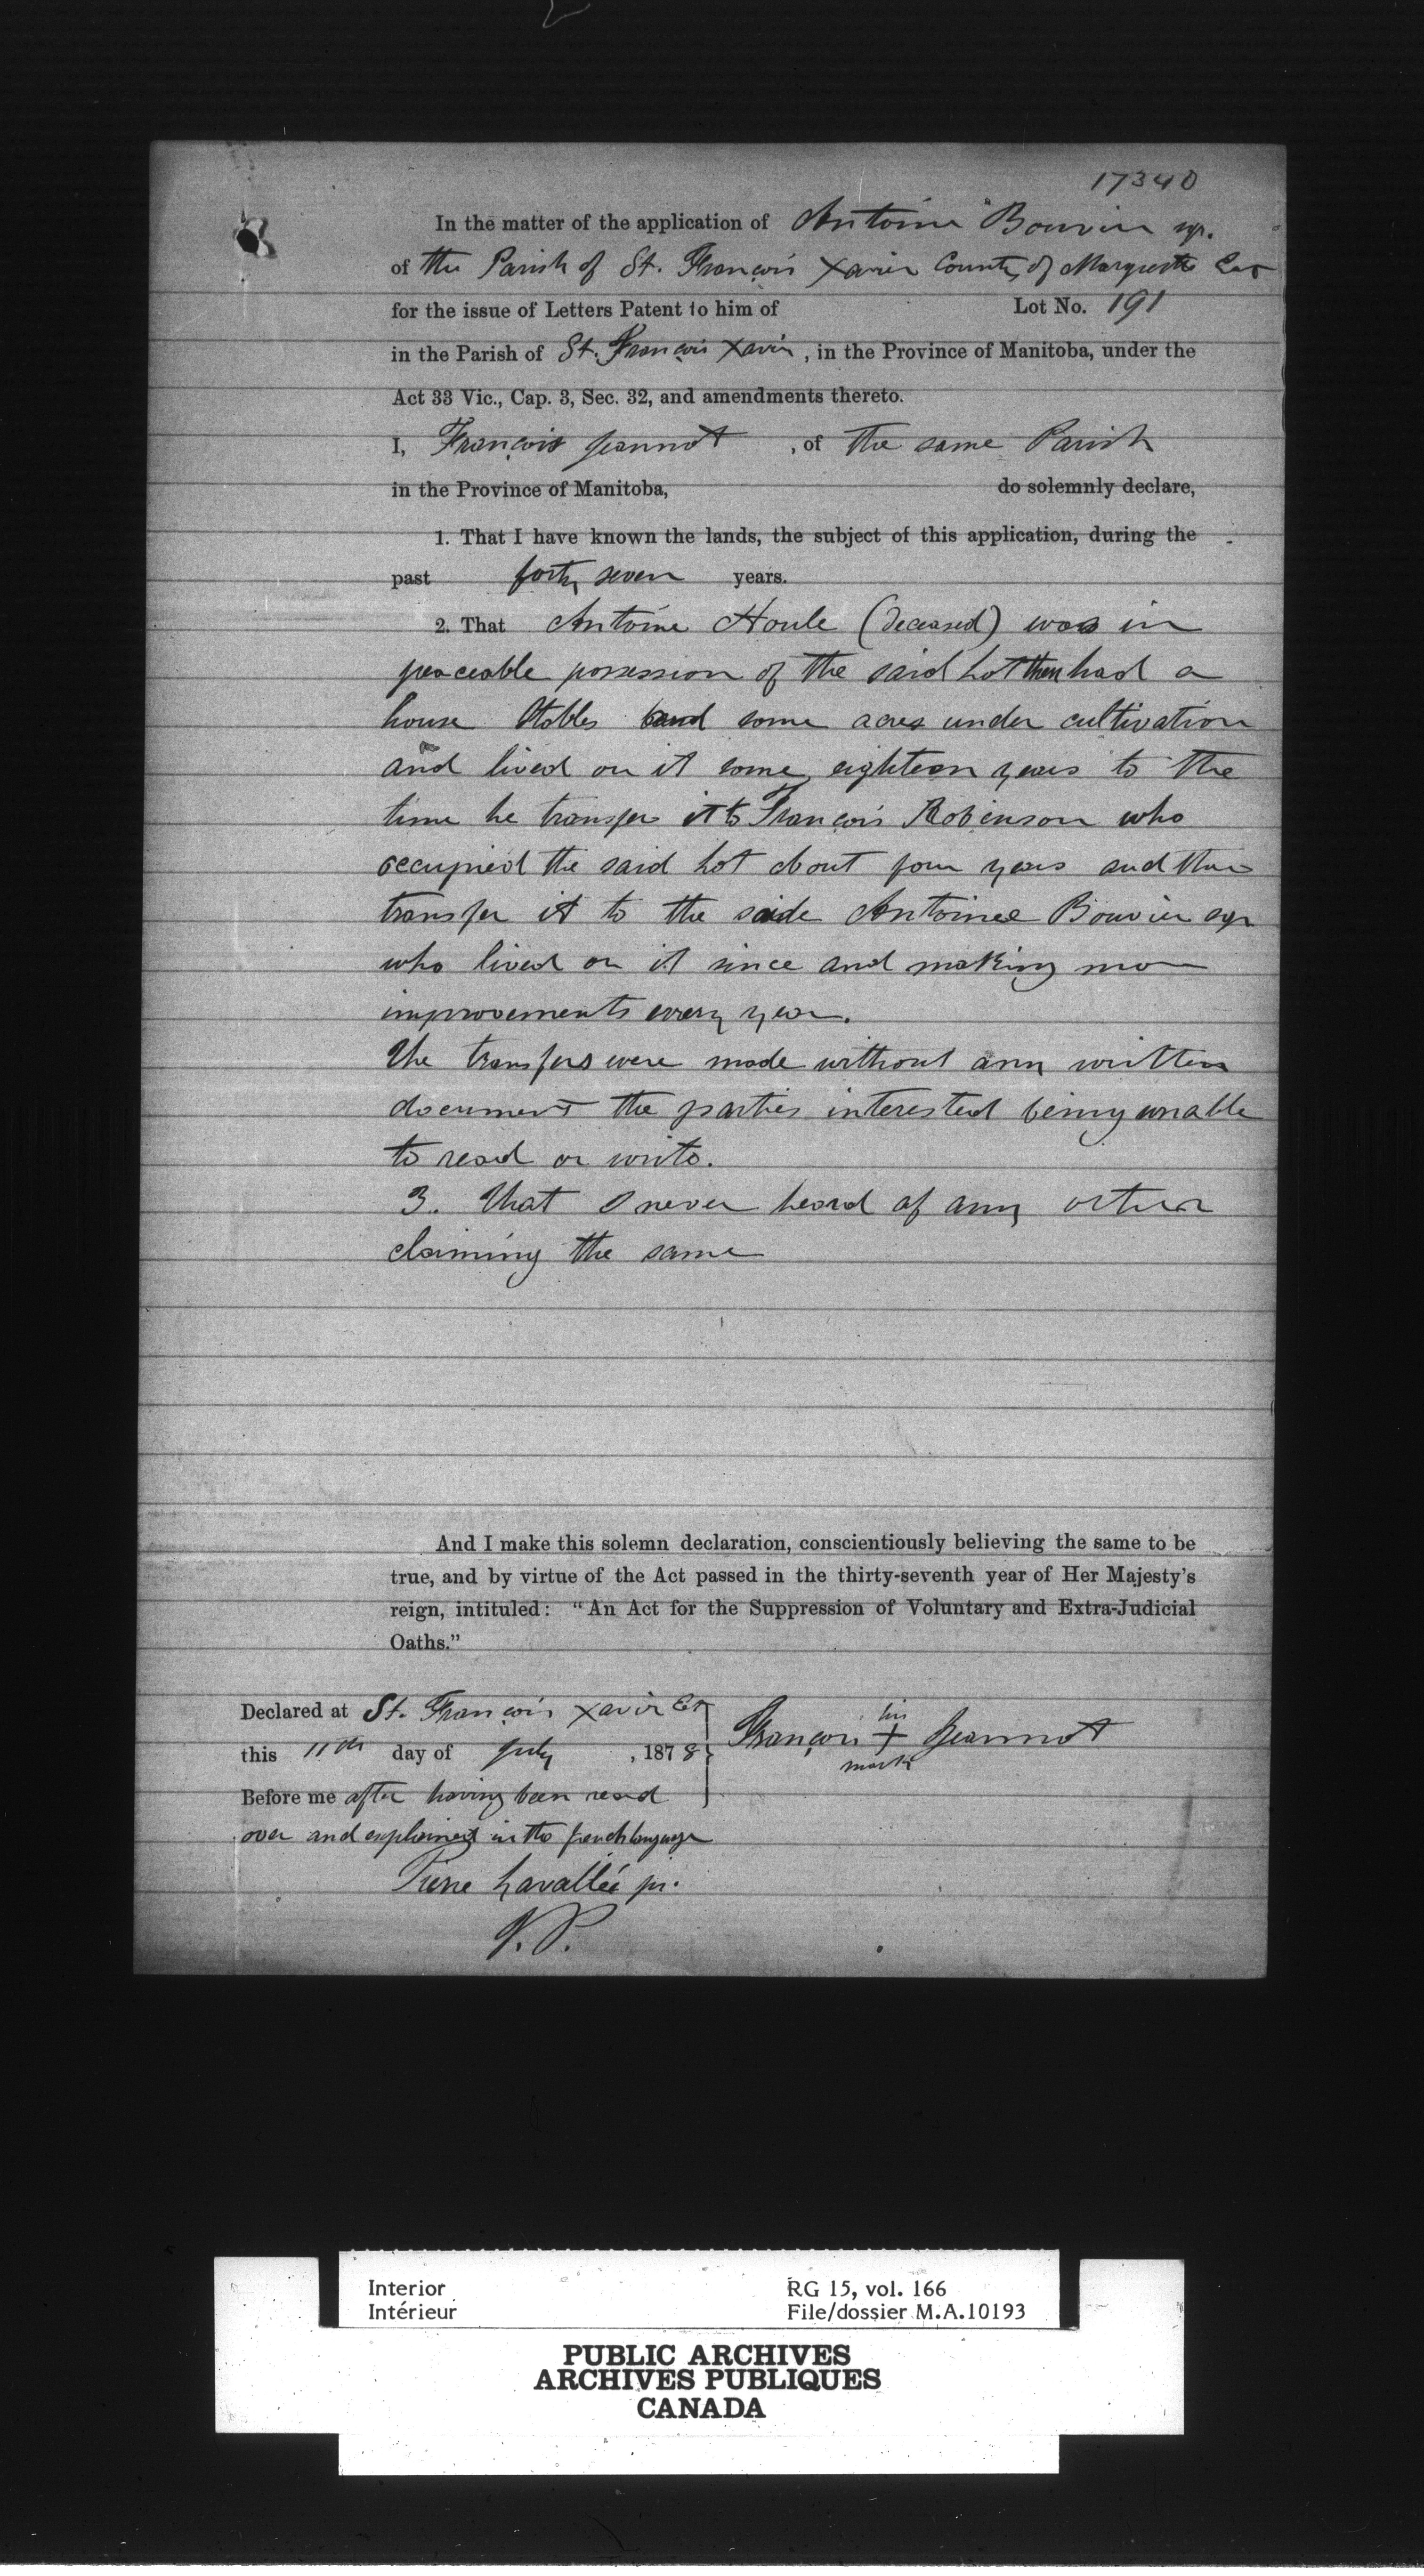 17340
In the matter of the application of Antoine Bouvier syr.
of the Parish of St. François Xavier County of Marquette East
for the issue of Letters Patent to him of Lot No. 191
in the Parish of St. François Xavier, in the Province of Manitoba, under the
Act 33 Vic., Cap. 3, Sec. 32, and amendments thereto.
I, François Jeannot, of the same Parish
in the Province of Manitoba, do solemnly declare,
1. That I have known the lands, the subject of this application, during the
past forty seven years.
2. That Antoine Houle (deceased) was in
peaceable possession of the said Lot then had a
house Stables and some acres under cultivation
and lived on it some eighteen years to the
time he transfer it to François Robinson who
occupied the said Lot about four years and then
transfer it to the saide Antoinee Bouvier syr
who lived on it since and making more
improvements every year.
The transfers were made without any written
document the parties interested being unable
to read or write.
3. That I never heard of any other
claiming the same
And I make this solemn declaration, conscientiously believing the same to be
true, and by virtue of the Act passed in the thirty-seventh year of Her Majesty's
reign, intituled: "An Act for the Suppression of Voluntary and Extra-Judicial
Oaths."
Declared at St. François Xavier Et
this 11th day of July, 1878
Before me after having been read
over and explained in the french language
François his + mark Jeannot
Pierre Lavallée jr.
J.P.
Interior RG 15, vol. 166
Intérieur File/dossier M.A.10193
PUBLIC ARCHIVES
ARCHIVES PUBLIQUES
CANADA